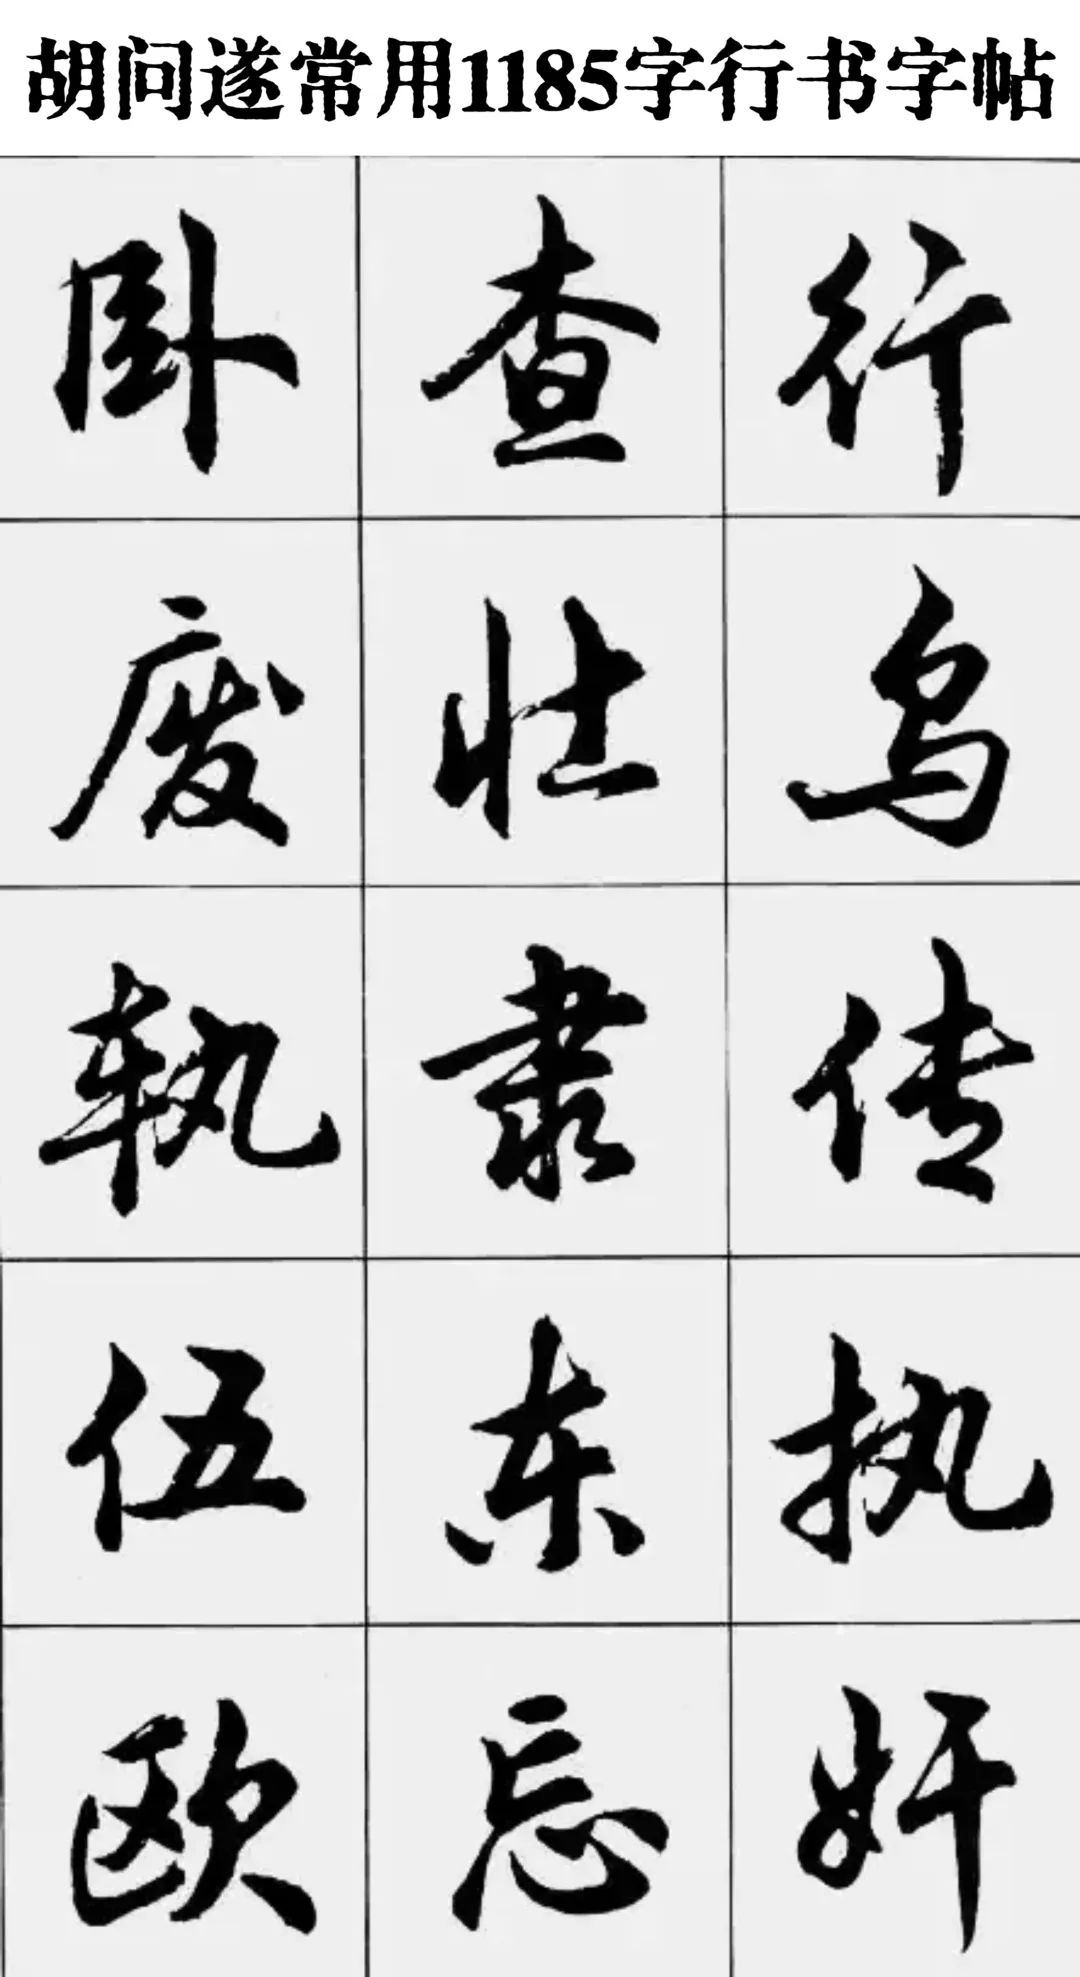 胡问遂常用1185字行书字帖
卧 查 行
废 壮 乌
传
伍 东 执
欧 忘 奸